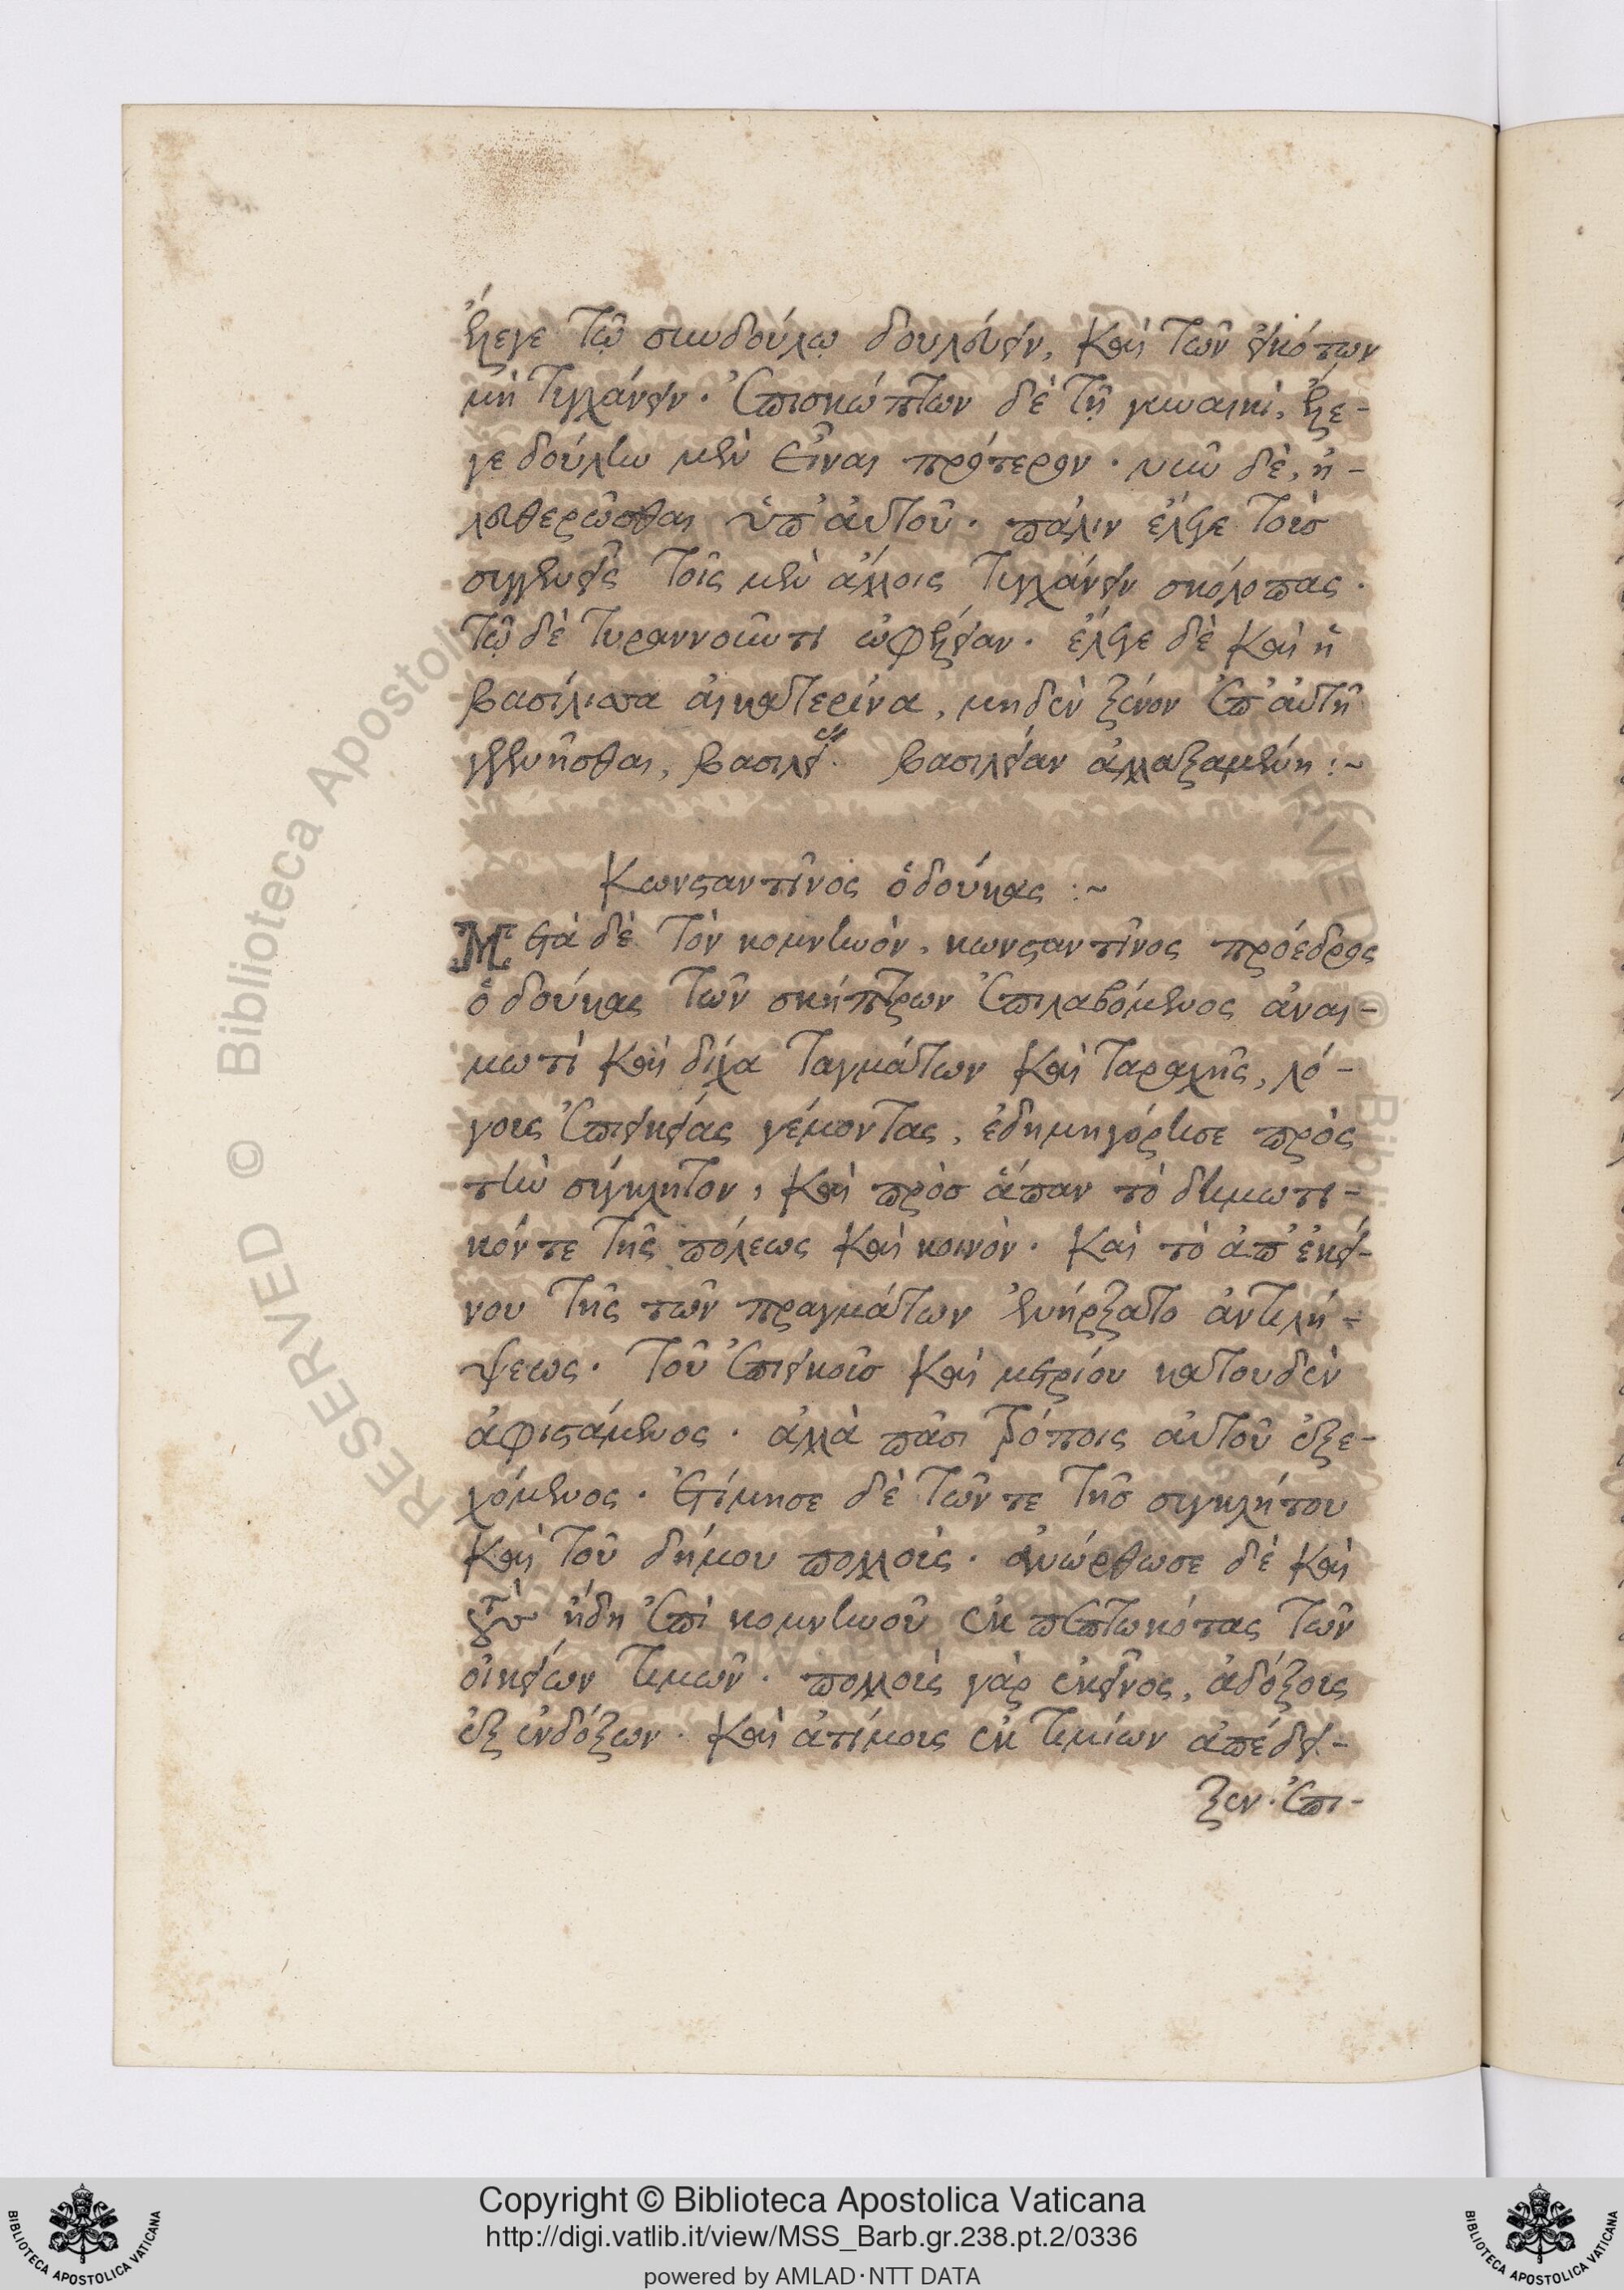 ἔλεγε τῷ συνδούλῳ δουλεύειν, καὶ τῶν εἰκότων
μὴ τυγχάνειν. ἐπισκώπτων δὲ τῇ γυναικὶ, ἔλε-
γε δούλην μὲν εἶναι πρότερον. νῦν δὲ, ἠ-
λευθερῶσθαι ὑπ' αὐτοῦ. πάλιν ἔλεγε τοῖσ
συγγενεῖς τοῖς μὲν ἄλλοις τυγχάνειν σκόλοπας.
τῷ δὲ τυραννοῦντι ὠφέλειαν. ἔλεγε δὲ καὶ ἡ
βασίλισσα αἰκατερίνα, μηδὲν ξένον ἐπ' αὐτῇ
γεγενῆσθαι, βασιλεί. βασιλείαν ἀλλαξαμένη :~
Κωνσταντῖνος ὁ δούκας :~
Μετὰ δὲ τὸν κομνηνὸν, κωνσταντῖνος πρόεδρος
ὁ δούκας τῶν σκήπτρων ἐπιλαβόμενος ἀναι-
μωτὶ καὶ δίχα ταγμάτων καὶ ταραχῆς, λό-
γους ἐπιεικείας γέμοντας, ἐδημηγόρησε πρὸς
τὴν σύγκλητον, καὶ πρὸσ ἅπαν τὸ δημωτι-
κόν τε τῆς πόλεως καὶ κοινὸν. καὶ τὸ ἀπ' ἐκεί-
νου τῆς τῶν πραγμάτων ἐνήρξατο ἀντιλή-
ψεως. τοῦ ἐπιεικοῦσ καὶ μετρίου κατουδὲν
ἀφιστάμενος. ἀλλὰ πᾶσι τρόποις αὐτοῦ ἐξε-
χόμενος. ἐτίμησε δὲ τῶν τε τῆσ συγκλήτου
καὶ τοῦ δήμου πολλοὺς. ἀνώρθωσε δὲ καὶ
τοὺσ ἤδη ἐπὶ κομνηνοῦ ἐκ πεπτωκότας τῶν
οἰκείων τιμῶν. πολλοὺς γὰρ ἐκεῖνος, ἀδόξους
ἐξ ἐνδόξων. καὶ ἀτίμους ἐκ τιμίων ἀπέδει-
ξεν. ἐπι-
RESERVED © Biblioteca Apostolica
Copyright © Biblioteca Apostolica Vaticana
http://digi.vatlib.it/view/MSS_Barb.gr.238.pt.2/0336
powered by AMLAD·NTT DATA
BIBLIOTECA APOSTOLICA VATICANA
BIBLIOTECA APOSTOLICA VATICANA